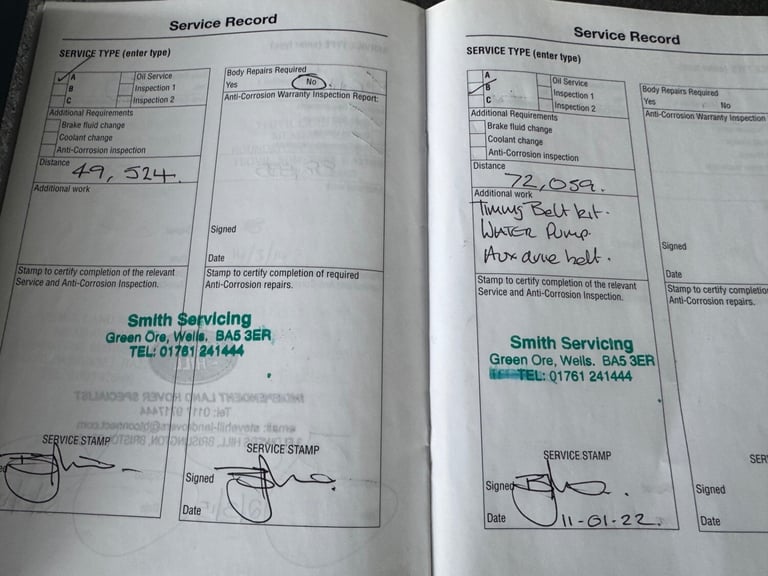 Service Record
SERVICE TYPE (enter type)
A
B
C
Oil Service
Inspection 1
Inspection 2
Additional Requirements
Brake fluid change
Coolant change
Anti-Corrosion inspection
Distance
49, 524.
Additional work
Body Repairs Required
Yes No
Anti-Corrosion Warranty Inspection Report:
Signed
Date
Stamp to certify completion of the relevant
Service and Anti-Corrosion Inspection.
Stamp to certify completion of required
Anti-Corrosion repairs.
Smith Servicing
Green Ore, Wells. BA5 3ER
TEL: 01761 241444
SERVICE STAMP
SERVICE STAMP
Signed
Date
Service Record
SERVICE TYPE (enter type)
A
B
C
Oil Service
Inspection 1
Inspection 2
Additional Requirements
Brake fluid change
Coolant change
Anti-Corrosion inspection
Distance
72,059.
Additional work
Timing Belt kit.
WATER Pump.
Aux drive belt.
Body Repairs Required
Yes No
Anti-Corrosion Warranty Inspection
Signed
Date
Stamp to certify completion of the relevant
Service and Anti-Corrosion Inspection.
Stamp to certify completio
Anti-Corrosion repairs.
Smith Servicing
Green Ore, Wells. BA5 3ER
TEL: 01761 241444
SERVICE STAMP
SER
Signed
Date 11-01-22.
Signed
Date